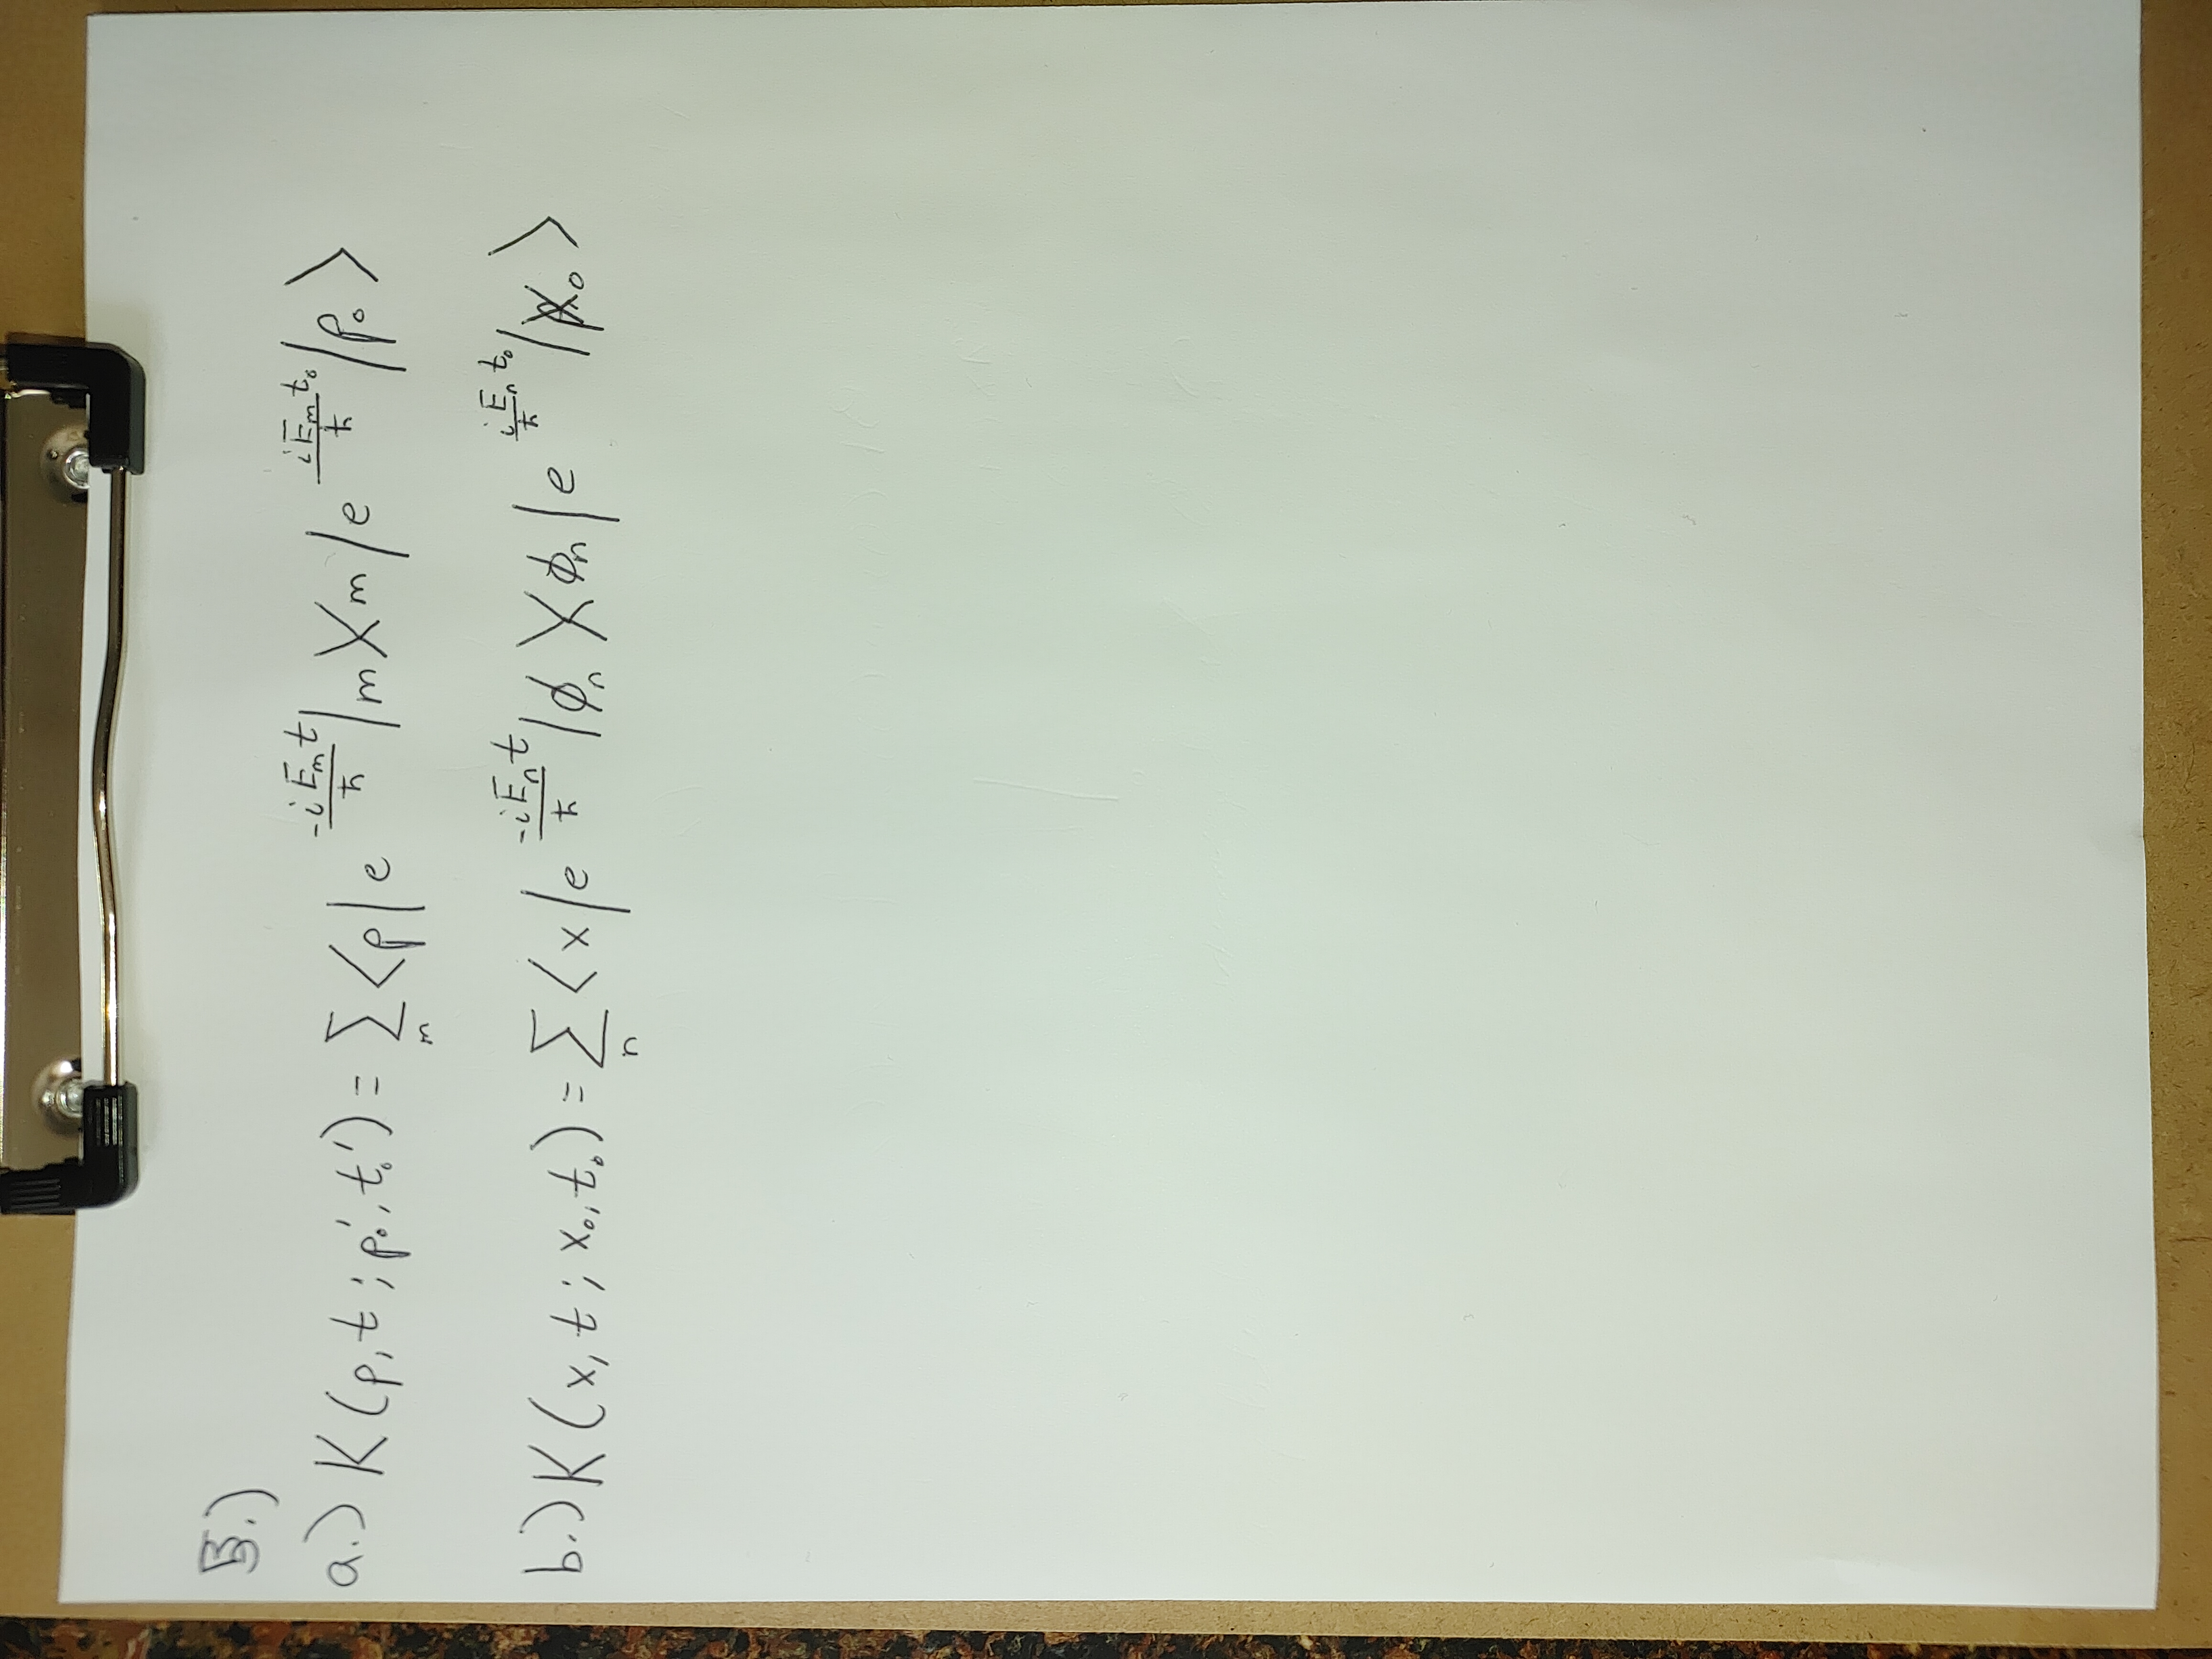 5.)
a.) K(p, t ; p₀', t₀') = Σ_m ⟨p| e^{-iE_m t/ħ} |m⟩⟨m| e^{iE_m t₀/ħ} |p₀⟩
b.) K(x, t ; x₀, t₀) = Σ_n ⟨x| e^{-iE_n t/ħ} |ϕ_n⟩⟨ϕ_n| e^{iE_n t₀/ħ} |x₀⟩